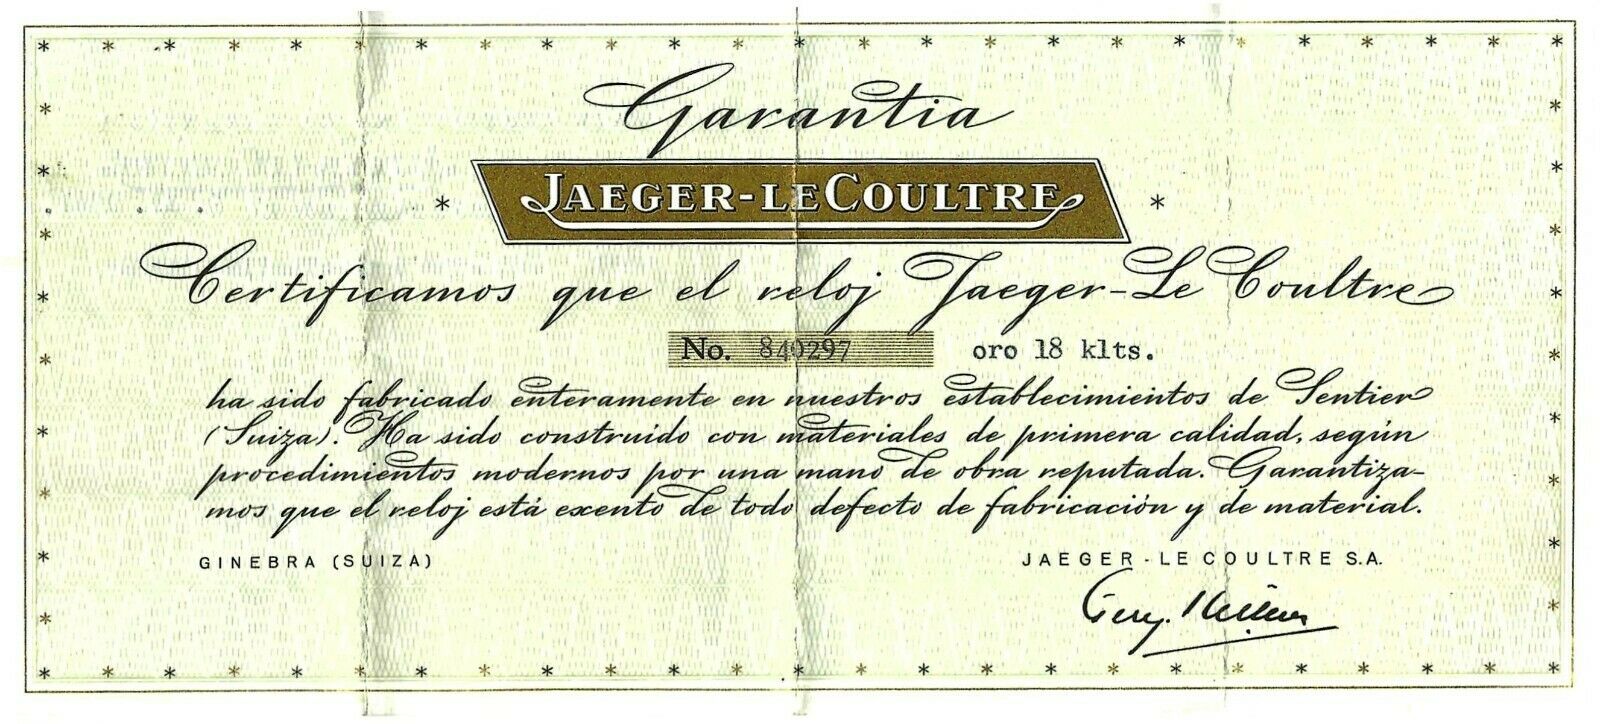 Garantia
JAEGER-LECOULTRE
Certificamos que el reloj Jaeger-Le Coultre
No. 840297 oro 18 klts.
ha sido fabricado enteramente en nuestros establecimientos de Sentier
(Suiza). Ha sido construido con materiales de primera calidad, según
procedimientos modernos por una mano de obra reputada. Garantiza-
mos que el reloj está excento de todo defecto de fabricación y de material.
GINEBRA (SUIZA) JAEGER-LE COULTRE S.A.